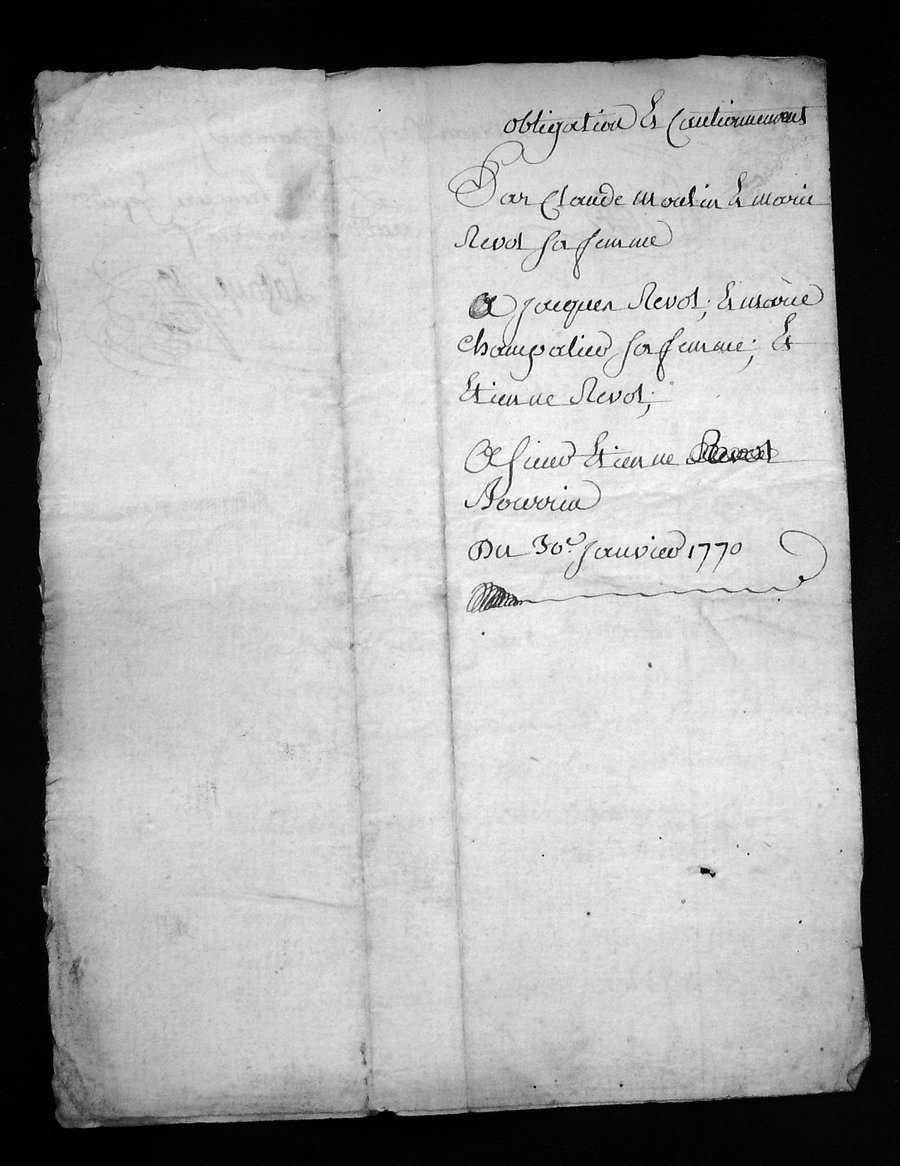 obligation Et Cautionnement
Par Claude moulin Et marie
Revol sa femme
A Jacques Revol; Et marie
Champalier sa femme; Et
Etienne Revol;
A sieur Etienne
Bourrin
Du 30e. Janvier 1770